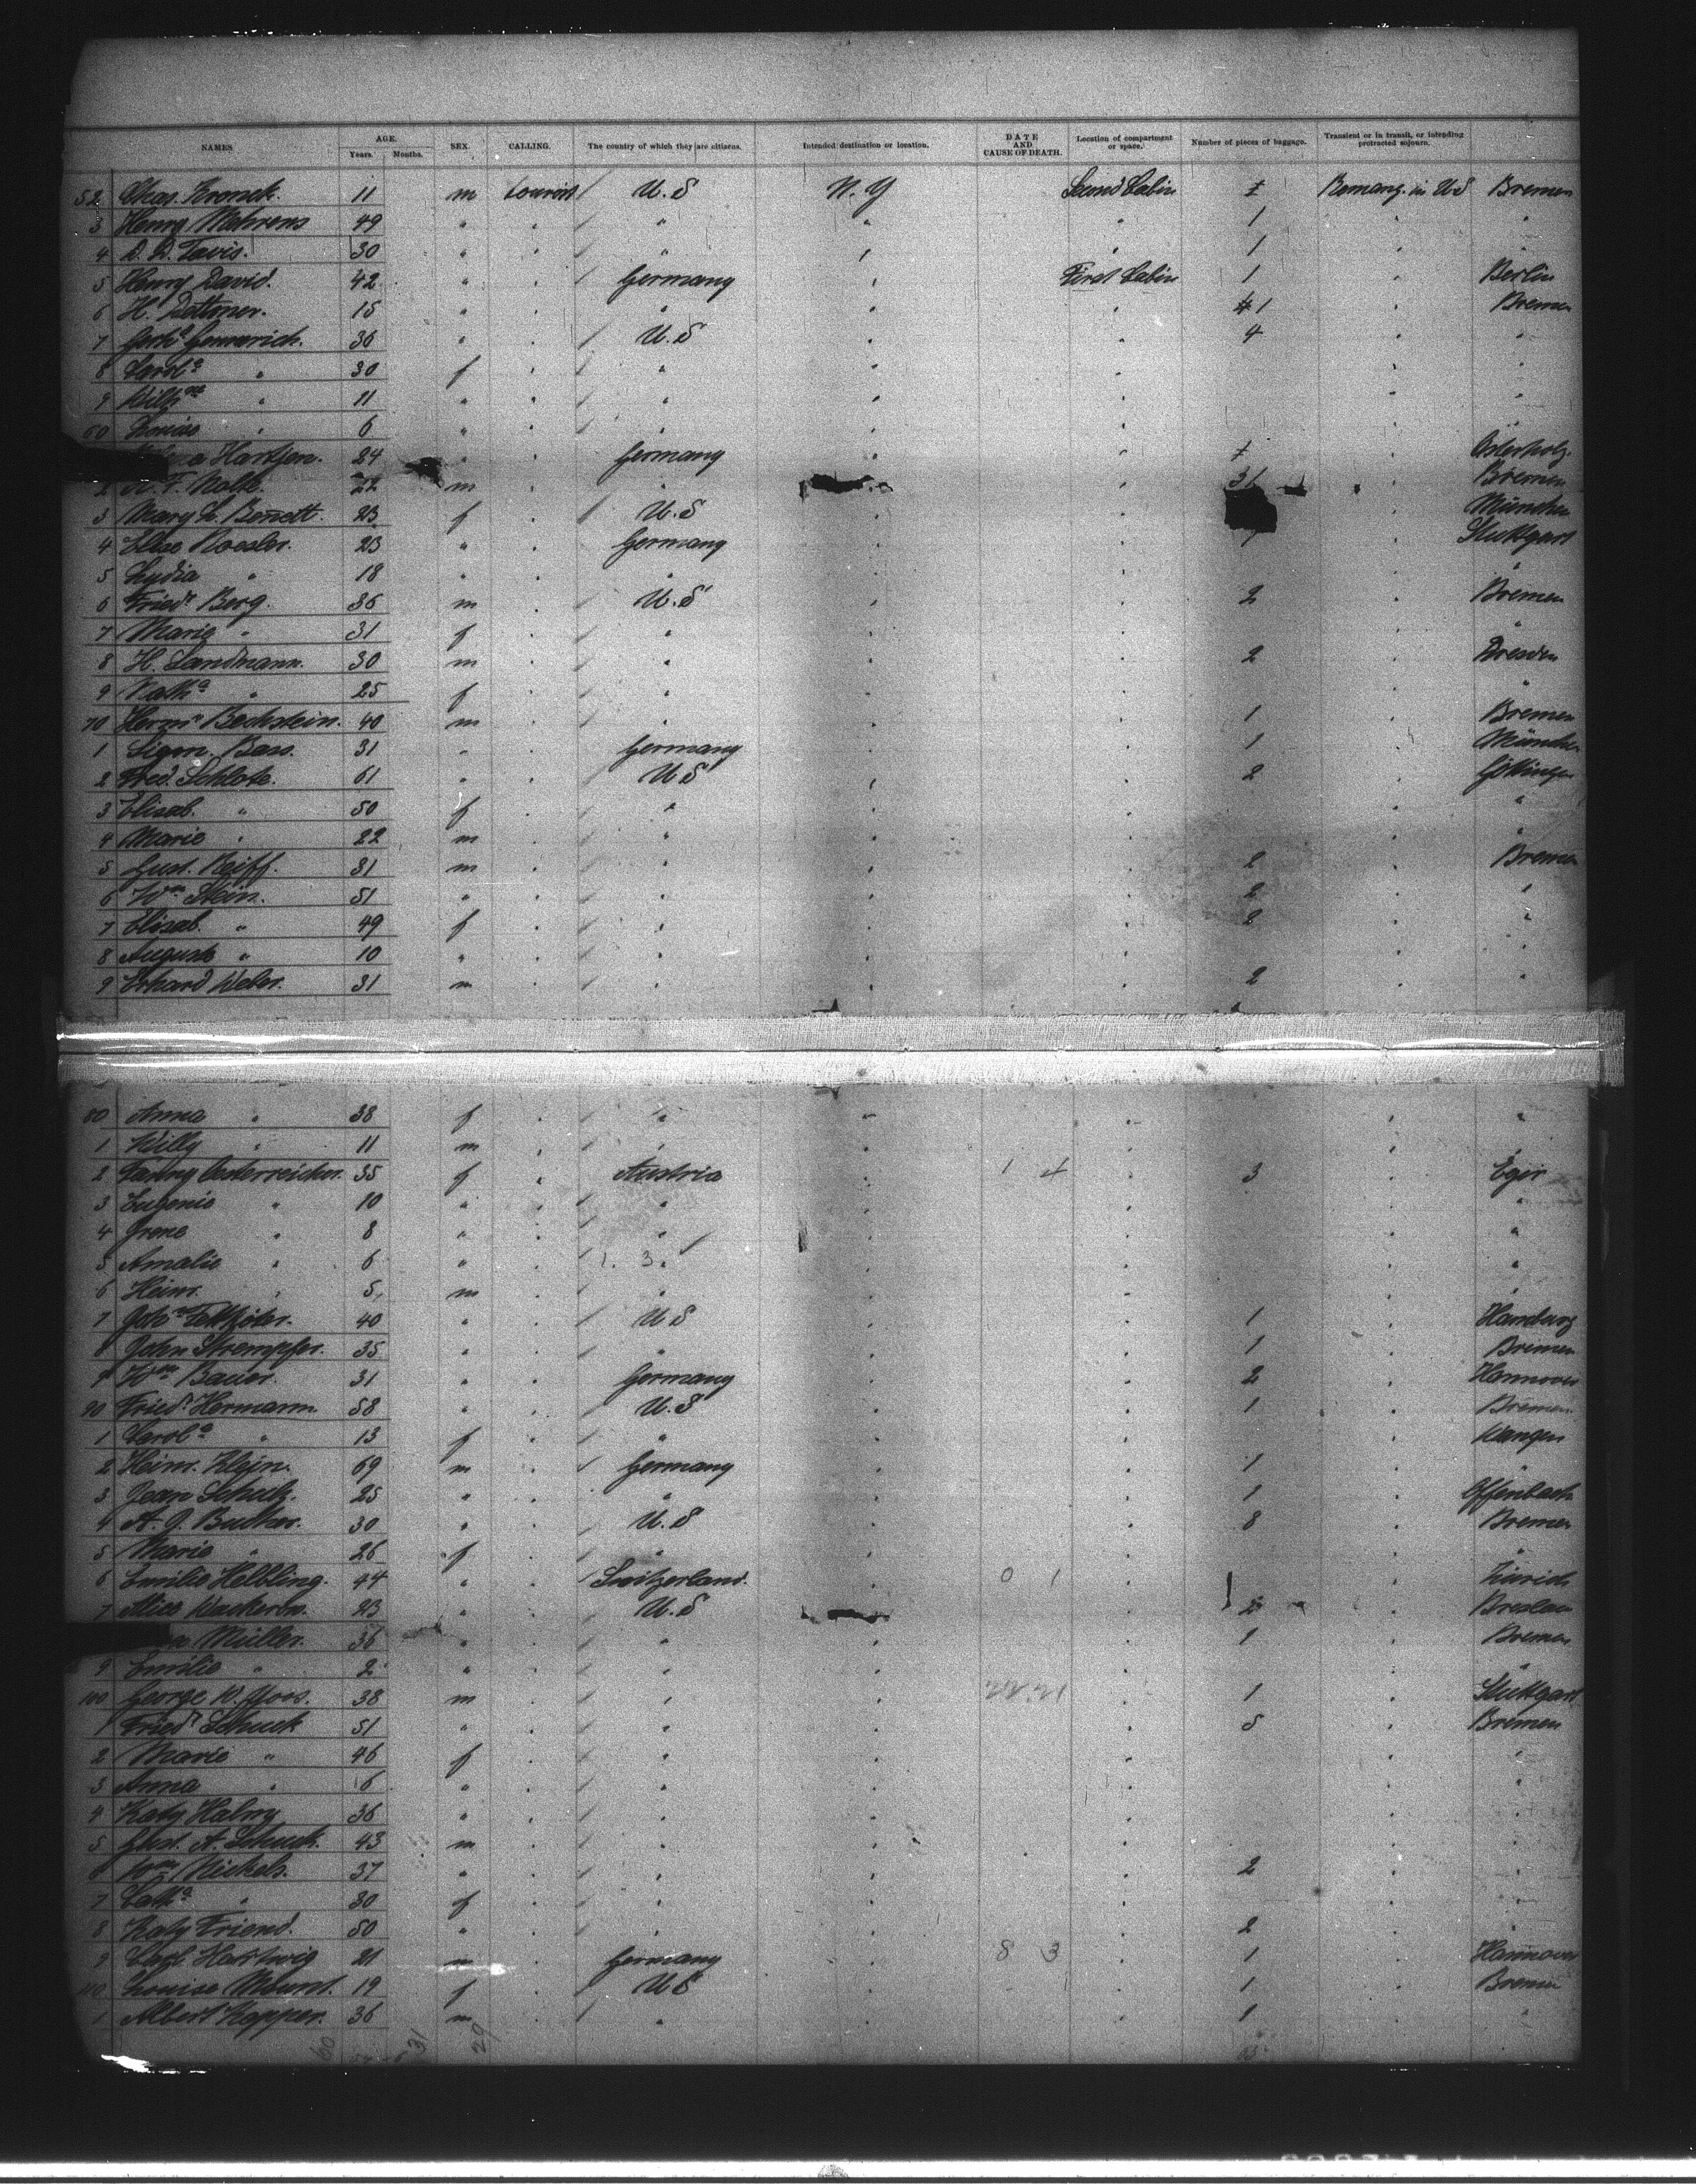 NAMES AGE. Years. Months. SEX. CALLING. The country of which they are citizens. Intended destination or location. DATE AND CAUSE OF DEATH. Location of compartment or space. Number of pieces of baggage. Transient or in transit, or intending protracted sojourn.
52 Chas. 11 m tourist U.S N.Y Second Cabin 1 in US Bremen
3 Henry Mehrens 49 " " " " " 1 " "
4 30 " " " " " 1 " "
5 Henry David. 42 " " Germany " First Cabin 1 " Berlin
6 H. Dettmer. 15 " " " " " 1 " Bremen
7 36 " " U.S " " 4 " "
8 Carola " 30 f " " " " " "
9 " 11 " " " " " " "
60 Louise " 6 " " " " " " "
Hartjen. 24 " Germany " " 1 Osterholz
2 22 m " " " 31 " Bremen
3 Mary L. Bennett. 23 f " U.S " " München
4 Elise Roesler. 23 " " Germany " " " Stuttgart
5 Lydia " 18 " " " " " " "
6 Friedr Berg. 36 m " U.S " " 2 " Bremen
7 Marie " 31 f " " " " " "
8 H. Landmann. 30 m " " " " 2 " Dresden
9 Katha " 25 f " " " " " "
70 Herm. Bechstein. 40 m " " " " 1 " Bremen
1 31 " " Germany " " 1 " München
2 Fred. Schlote. 61 " " US " " 2 " Göttingen
3 Elisab. " 50 f " " " " " "
4 Marie " 22 m " " " " " "
5 Gust. Reiff. 31 m " " " " 2 " Bremen
6 Wm Stein. 51 " " " " " 2 " "
7 Elisab. " 49 f " " " " 2 " "
8 Auguste " 10 " " " " " " "
9 Erhard Weber. 31 m " " " " 2 " "
80 Anna " 38 f " " " " " "
1 Willy " 11 m " " " " " "
2 Fanny Oesterreicher. 35 f " Austria 1 4 " 3 " Eger
3 Eugenie " 10 " " " " " " "
4 Irene " 8 " " " " " " "
5 Amalie " 6 " " 1. 3. " " " "
6 Heinr. " 5 m " " " " " "
7 40 " " US " " 1 " Hamburg
8 John Strempfer. 35 " " " " " 1 " Bremen
9 Wm Bauer. 31 " " Germany " " 2 " Hannover
90 Friedr. Hermann. 58 " " U.S " " 1 " Bremen
1 Carola " 13 f " " " " "
2 Heinr. Klein. 69 m " Germany " " 1 " "
3 Jean Schulz. 25 " " " " " 1 " Offenbach
4 A. J. 30 " " U.S " " 8 " Bremen
5 Marie " 26 f " " " " " "
6 Emilie Helbling. 44 " " Switzerland. " 0 1 " 1 " Zürich
7 Alice 23 " " U.S " " 2 " Breslau
Müller. 36 " " " " " 1 " Bremen
9 Emilie " 2 " " " " " " "
100 George W. Yoos. 38 m " " " " 1 " Stuttgart
1 Friedr Schuck 51 " " " " " 5 " Bremen
2 Marie " 46 f " " " " " "
3 Anna " 6 " " " " " " "
4 Katy 36 " " " " " " "
5 Gust. A. Schuck. 43 m " " " " " "
6 Wm Nickels. 37 " " " " " 2 " "
7 Catha " 30 f " " " " " "
8 Katy Friend. 50 " " " " " 2 " "
9 Carl Hartwig 21 m " Germany " 8 3 " 1 " Hannover
110 Louise 19 f " US " " 1 " Bremen
1 Albert Kopper. 36 m " " " " 1 " "
60 31 29